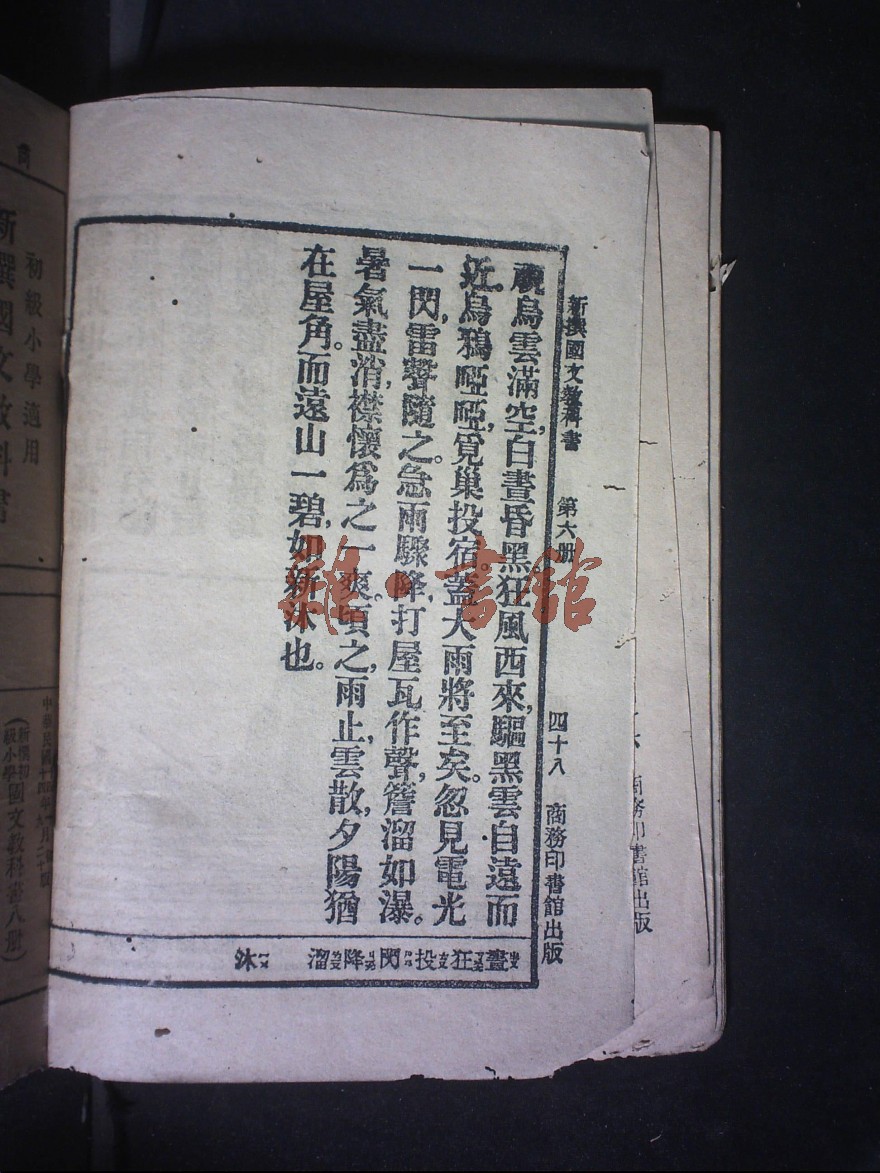 新撰國文教科書 第六册 四十八 商務印書館出版
覰烏雲滿空,白晝昏黑,狂風西來,驅黑雲自遠而
近,烏鴉啞啞,覓巢投宿。蓋大雨將至矣。忽見電光
一閃,雷聲隨之。急雨驟降,打屋瓦作聲,簷溜如瀑。
暑氣盡消,襟懷爲之一爽。頃之,雨止,雲散,夕陽猶
在屋角。而遠山一碧,如新沐也。
晝 狂 投 閃 降 溜 沐
雜·書館
商務印書館出版
初級小學適用
新撰國文教科書
中華民國十四年
(新撰初級小學國文教科書八册)